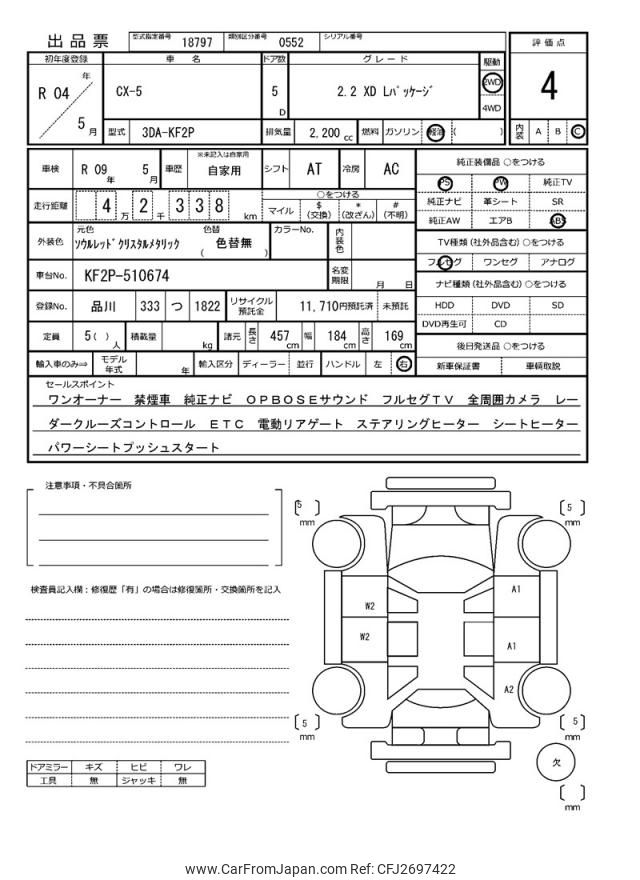 出品票 型式指定番号 18797 類別区分番号 0552 シリアル番号
初年度登録 車名 ドア数 グレード 駆動 評価点
R 04 年 5 月 CX-5 5 D 2.2 XD Lパッケージ 2WD 4WD 4
型式 3DA-KF2P 排気量 2,200 cc 燃料 ガソリン 軽油 ( ) 内装 A B C
車検 R 09 年 5 月 車歴 ※未記入は自家用 自家用 シフト AT 冷房 AC 純正装備品 ○をつける
PS PW 純正TV
走行距離 4 万 2 千 3 3 8 km ○をつける マイル $(交換) *(改ざん) #(不明) 純正ナビ 革シート SR
純正AW エアB ABS
外装色 元色 ソウルレッドクリスタルメタリック 色替 ( 色替無 ) カラーNo. 内装色 TV種類 (社外品含む) ○をつける
フルセグ ワンセグ アナログ
車台No. KF2P-510674 名変期限 月 日 ナビ種類 (社外品含む) ○をつける
登録No. 品川 333 つ 1822 リサイクル預託金 11,710円預託済 未預託 HDD DVD SD
DVD再生可 CD
定員 5( )人 積載量 kg 諸元 長さ 457cm 幅 184cm 高さ 169cm 後日発送品 ○をつける
輸入車のみ⇒ モデル年式 年 輸入区分 ディーラー 並行 ハンドル 左 右 新車保証書 車輌取説
セールスポイント
ワンオーナー 禁煙車 純正ナビ OPBOSEサウンド フルセグTV 全周囲カメラ レー
ダークルーズコントロール ETC 電動リアゲート ステアリングヒーター シートヒーター
パワーシートプッシュスタート
注意事項・不具合箇所
5 mm
5 mm
検査員記入欄：修復歴「有」の場合は修復箇所・交換箇所を記入
A1
W2
W2
A1
A2
5 mm
5 mm
欠
mm
ドアミラー キズ ヒビ ワレ
工具 無 ジャッキ 無
www.CarFromJapan.com Ref: CFJ2697422